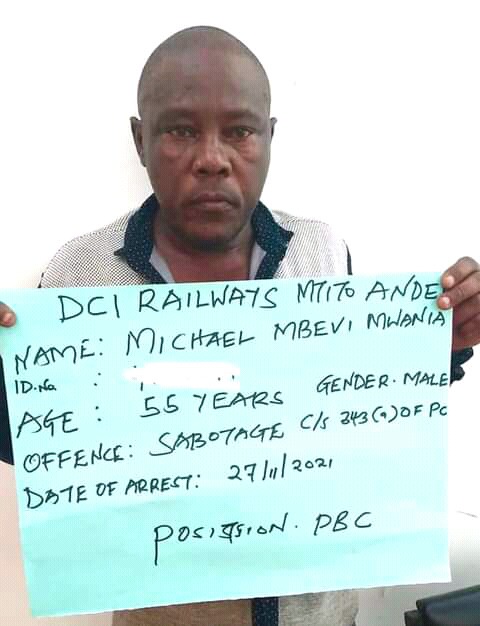 DCI RAILWAYS MTITO ANDE
NAME: MICHAEL MBEVI MWANIA
ID.No :
AGE : 55 YEARS GENDER. MALE
OFFENCE: SABOTAGE C/S 343(a) OF PC
DATE OF ARREST: 27/11/2021
POSISSION. PBC